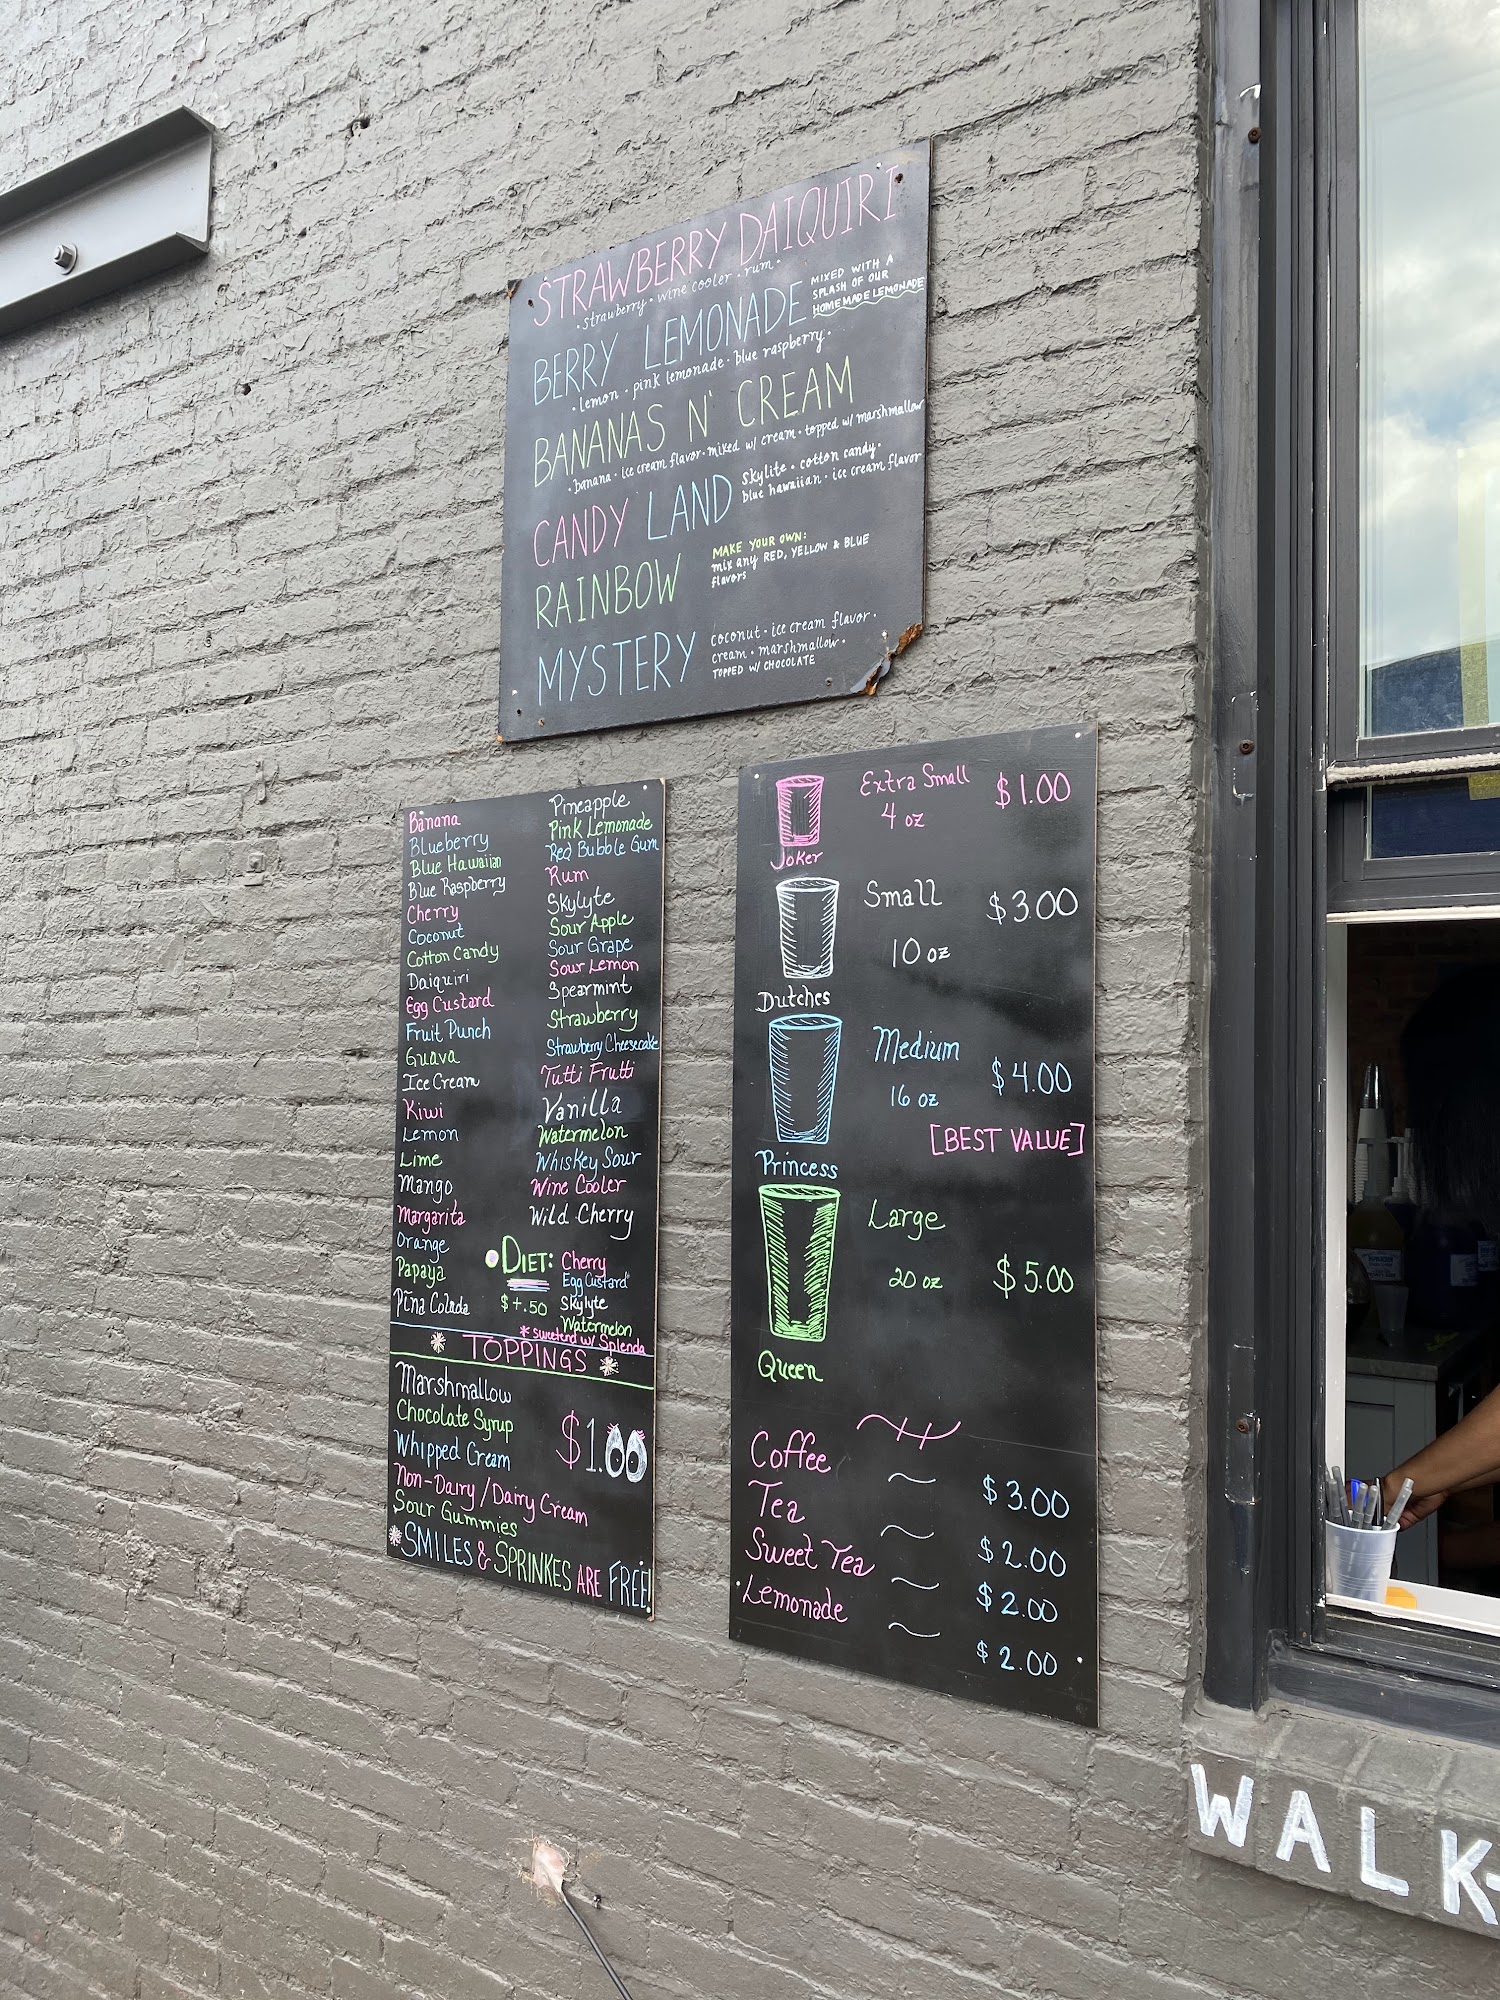 STRAWBERRY DAIQUIRI
• strawberry • wine cooler • rum •
BERRY LEMONADE
MIXED WITH A
SPLASH OF OUR
HOMEMADE LEMONADE
• lemon • pink lemonade • blue raspberry •
BANANAS N' CREAM
• banana • ice cream flavor • mixed w/ cream • topped w/ marshmallow
CANDY LAND
skylite • cotton candy •
blue hawaiian • ice cream flavor
RAINBOW
MAKE YOUR OWN:
mix any RED, YELLOW & BLUE
flavors
MYSTERY
coconut • ice cream flavor •
cream • marshmallow •
TOPPED W/ CHOCOLATE
Banana
Blueberry
Blue Hawaiian
Blue Raspberry
Cherry
Coconut
Cotton Candy
Daiquiri
Egg Custard
Fruit Punch
Guava
Ice Cream
Kiwi
Lemon
Lime
Mango
Margarita
Orange
Papaya
Piña Colada
Pineapple
Pink Lemonade
Red Bubble Gum
Rum
Skylyte
Sour Apple
Sour Grape
Sour Lemon
Spearmint
Strawberry
Strawberry Cheesecake
Tutti Frutti
Vanilla
Watermelon
Whiskey Sour
Wine Cooler
Wild Cherry
• DIET:
$+.50
Cherry
Egg Custard
Skylyte
Watermelon
* sweetend w/ Splenda
TOPPINGS
Marshmallow
Chocolate Syrup
Whipped Cream
Non-Dairy / Dairy Cream
Sour Gummies
$1.00
* SMILES & SPRINKES ARE FREE!
Extra Small $1.00
4 oz
Joker
Small $3.00
10 oz
Dutches
Medium $4.00
16 oz
[BEST VALUE]
Princess
Large
20 oz $5.00
Queen
Coffee ~ $3.00
Tea ~ $2.00
Sweet Tea ~ $2.00
Lemonade ~ $2.00
WALK-